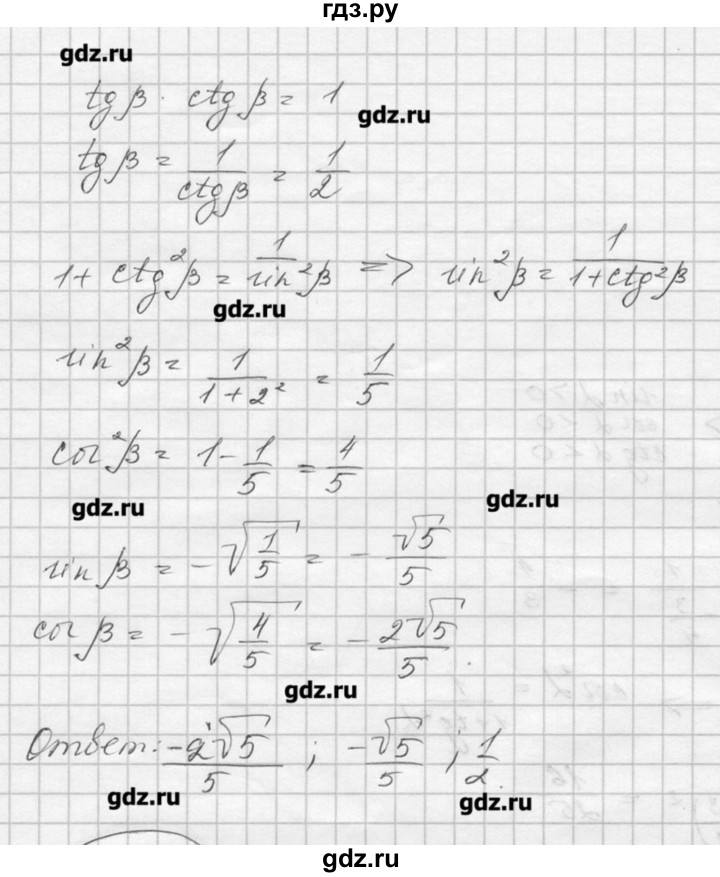 гдз.ру
gdz.ru
tg β · ctg β = 1
gdz.ru
tg β = 1/ctg β = 1/2
1 + ctg²β = 1/sin²β => sin²β = 1/1+ctg²β
gdz.ru
sin²β = 1/1+2² = 1/5
cos²β = 1 - 1/5 = 4/5
gdz.ru
gdz.ru
sin β = -√1/5 = -√5/5
cos β = -√4/5 = -2√5/5.
gdz.ru
Ответ: -2√5/5 ; -√5/5 ; 1/2.
gdz.ru
gdz.ru
gdz.ru